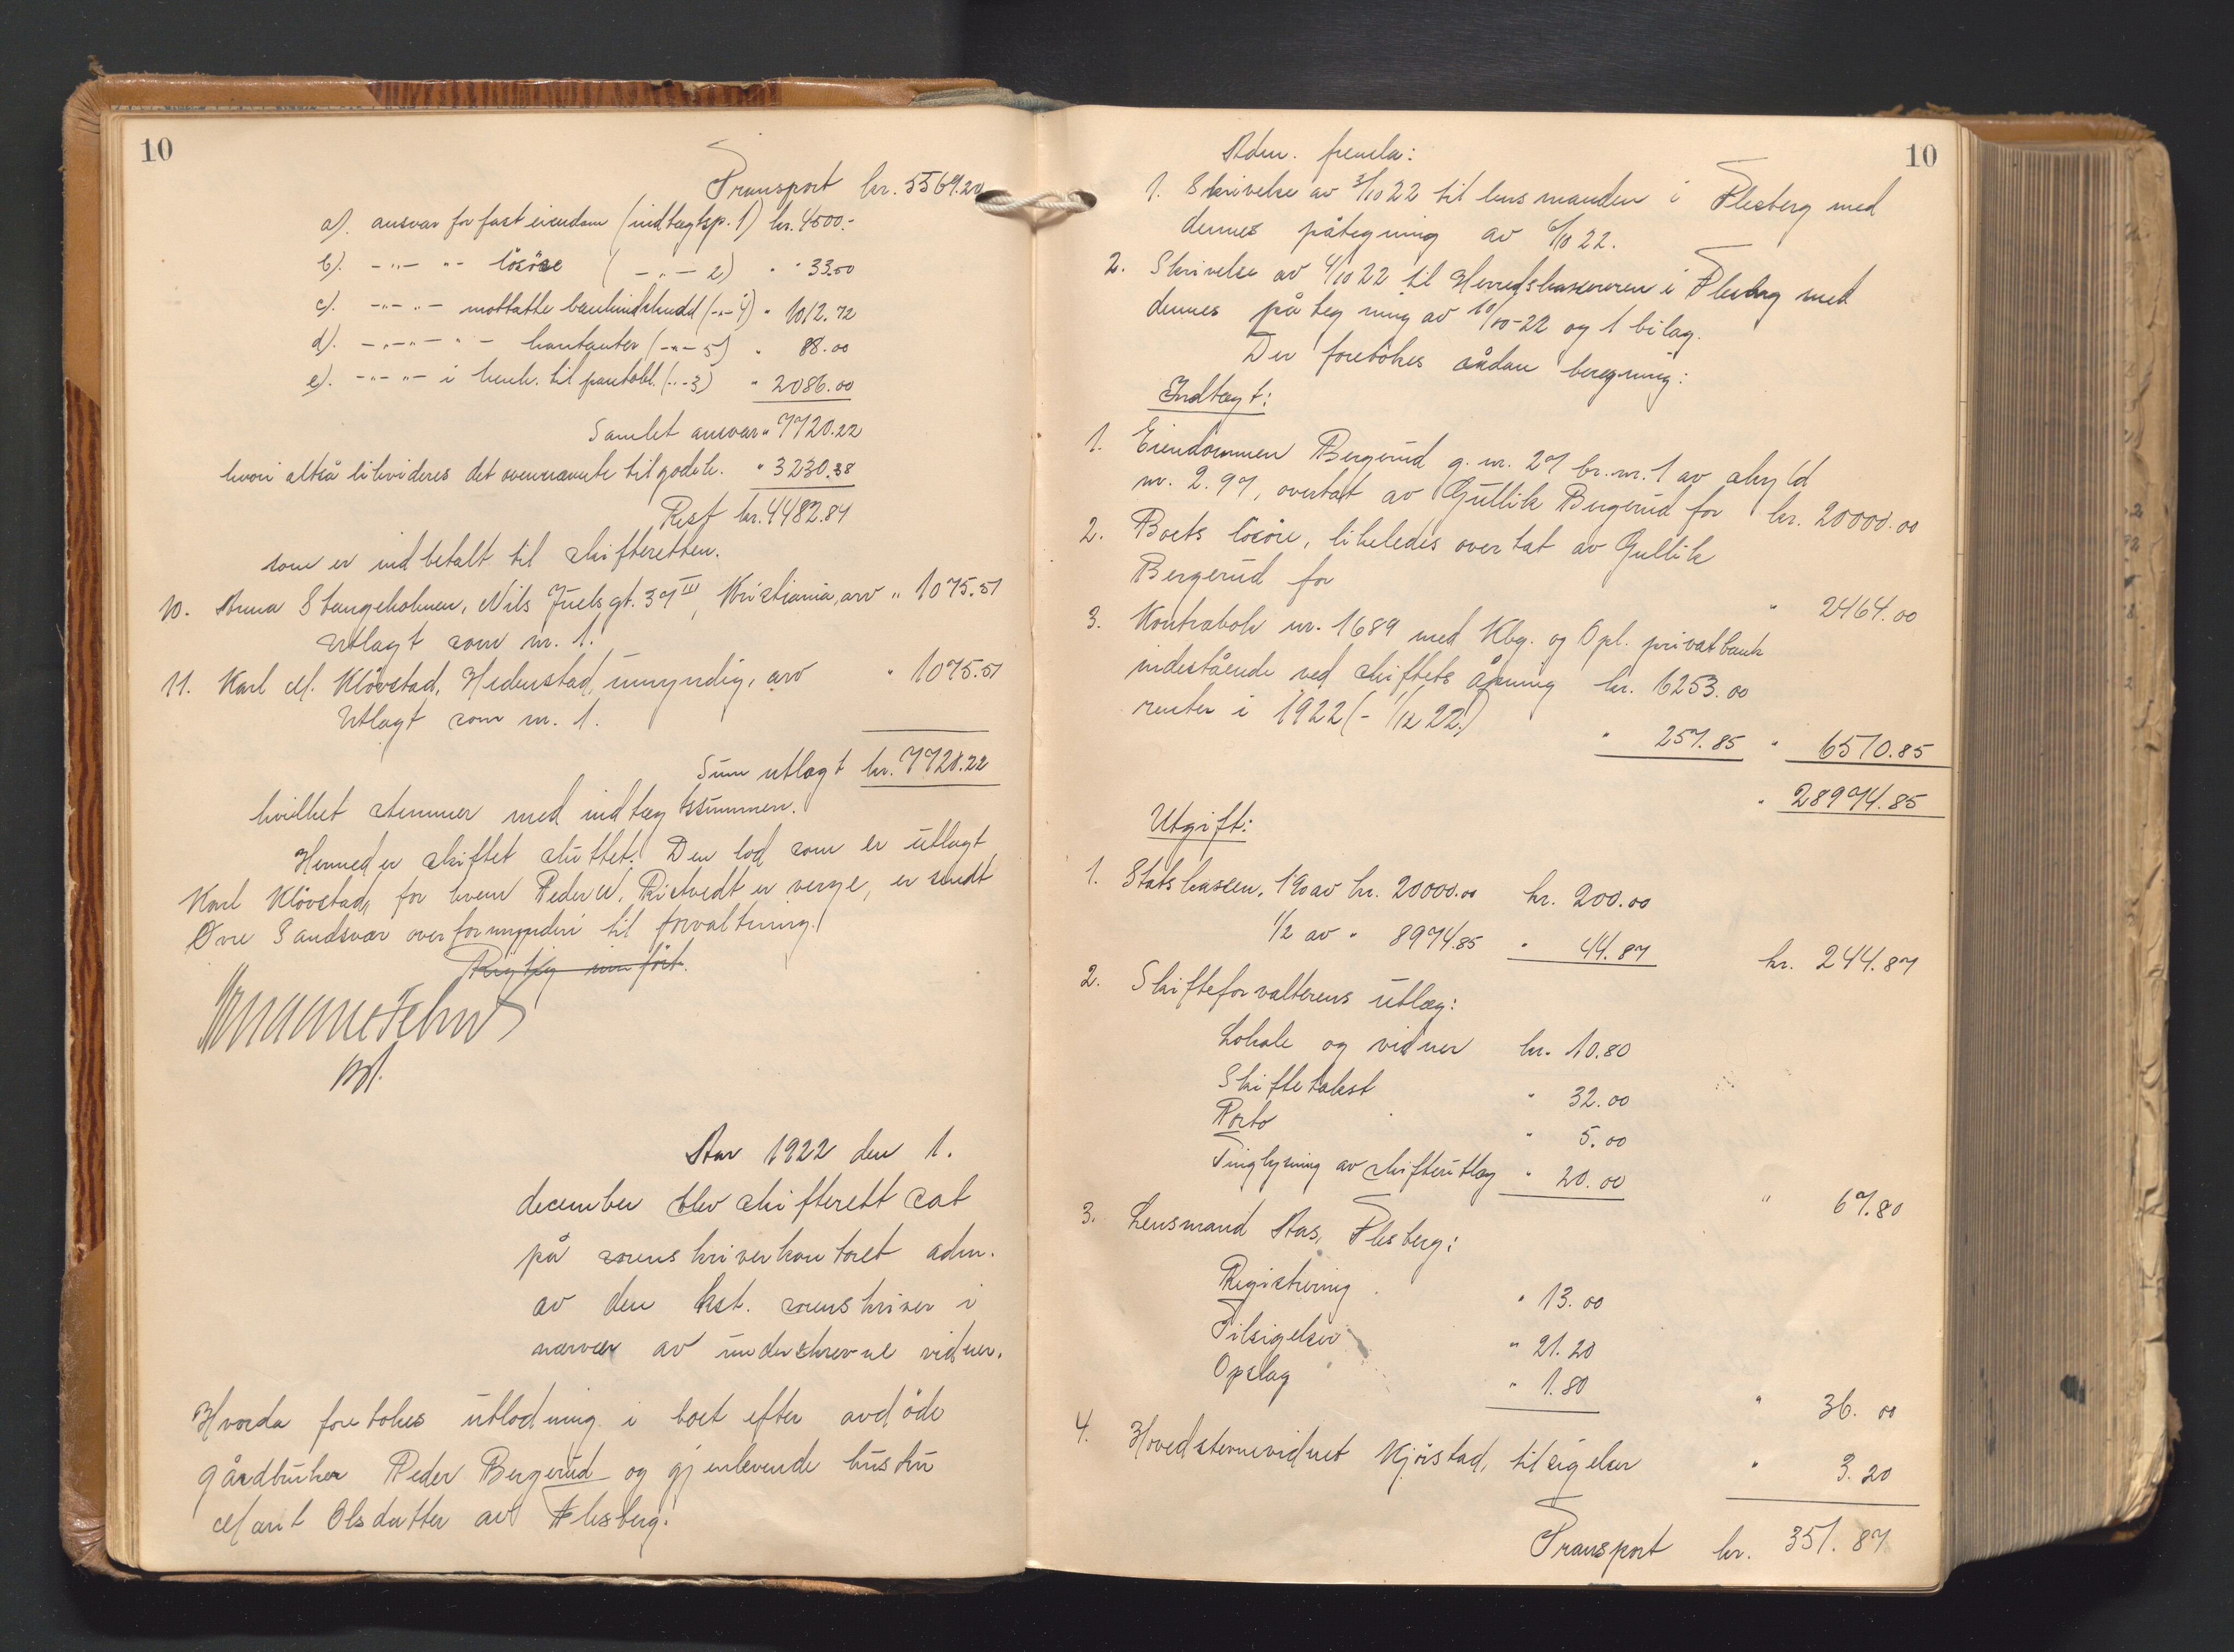 10
Transport kr. 5569.20
a). ansvar for fast eiendom (indtægtsp. 1) kr. 4500.-
b). -"- "- lösöre ( -"- 2) " " 33.50
c). -"- "- mottatte bankindskudd (-"- 4) " 1012.72
d). -"-"- " - kontanter (-"- 5) " 88.00
e). -"- "- i henh. til pantobl. (-"- 3) " 2086.00
Samlet ansvar " 7720.22
hvori altså likvideres det ovennævnte tilgodeh. " 3230.38
Rest kr. 4482.84
som er indbetalt til skifteretten.
10. Anna Stangeholmen, Nils Juels gt. 37 III, Kristiania, arv " 1075.51
Utlagt som nr. 1.
11. Karl M. Klövstad, Hedenstad, umyndig, arv " 1075.51
Utlagt som nr. 1.
Sum utlagt kr. 7720.22
hvilket stemmer med indtægtssummen.
Hermed er skiftet sluttet. Den lod som er utlagt
Karl Klövstad, for hvem Peder N. Ristvedt er verge, er sendt
Övre Sandsvær overformynderi til forvaltning.
Rigtig innfört.
Aar 1922 den 1.
december blev skifterett sat
på sorenskriverkontoret adm.
av den kst. sorenskriver i
nærvær av underskrevne vidner.
Hvorda foretokes utlodning i boet efter avdöde
gårdbruker Peder Bergerud og gjenlevende hustru
Marit Olsdatter av Flesberg.
10
Adm. fremla:
1. Skrivelse av 3/10 22 til lensmanden i Flesberg med
dennes påtegning av 6/10 22.
2. Skrivelse av 4/10 22 til Herredskassereren i Flesberg med
dennes påtegning av 10/10-22 og 1 bilag.
Der foretokes sådan beregning:
Indtægt:
1. Eiendommen Bergerud g.nr. 27 br.nr. 1 av skyld
mr. 2.97, overtat av Gullik Bergerud for kr. 20000.00
2. Boets lösöre, likeledes overtat av Gullik
Bergerud for " 2464.00
3. Kontrabok nr. 1689 med Kbg. og Opl. privatbank
indestående ved skiftets åpning kr. 6253.00
renter i 1922 (- 1/12 22.) " 257.85 " 6510.85
" 28974.85
Utgift:
1. Statskassen, 1% av kr. 20000.00 kr. 200.00
1/2 av " 8974.85 " 44.87 kr. 244.87
2. Skifteforvalterens utlæg:
Lokale og vidner kr. 10.80
Skiftetakst " 32.00
Porto " 5.00
Tinglysning av skifteutlæg " 20.00 " 67.80
3. Lensmand Aas, Flesberg:
Registrering " 13.00
Tilsigelser " 21.20
Opslag " 1.80 " 36.00
4. Hovedstevnevidnet Kjörstad, tilsigelser " 3.20
Transport kr. 351.87